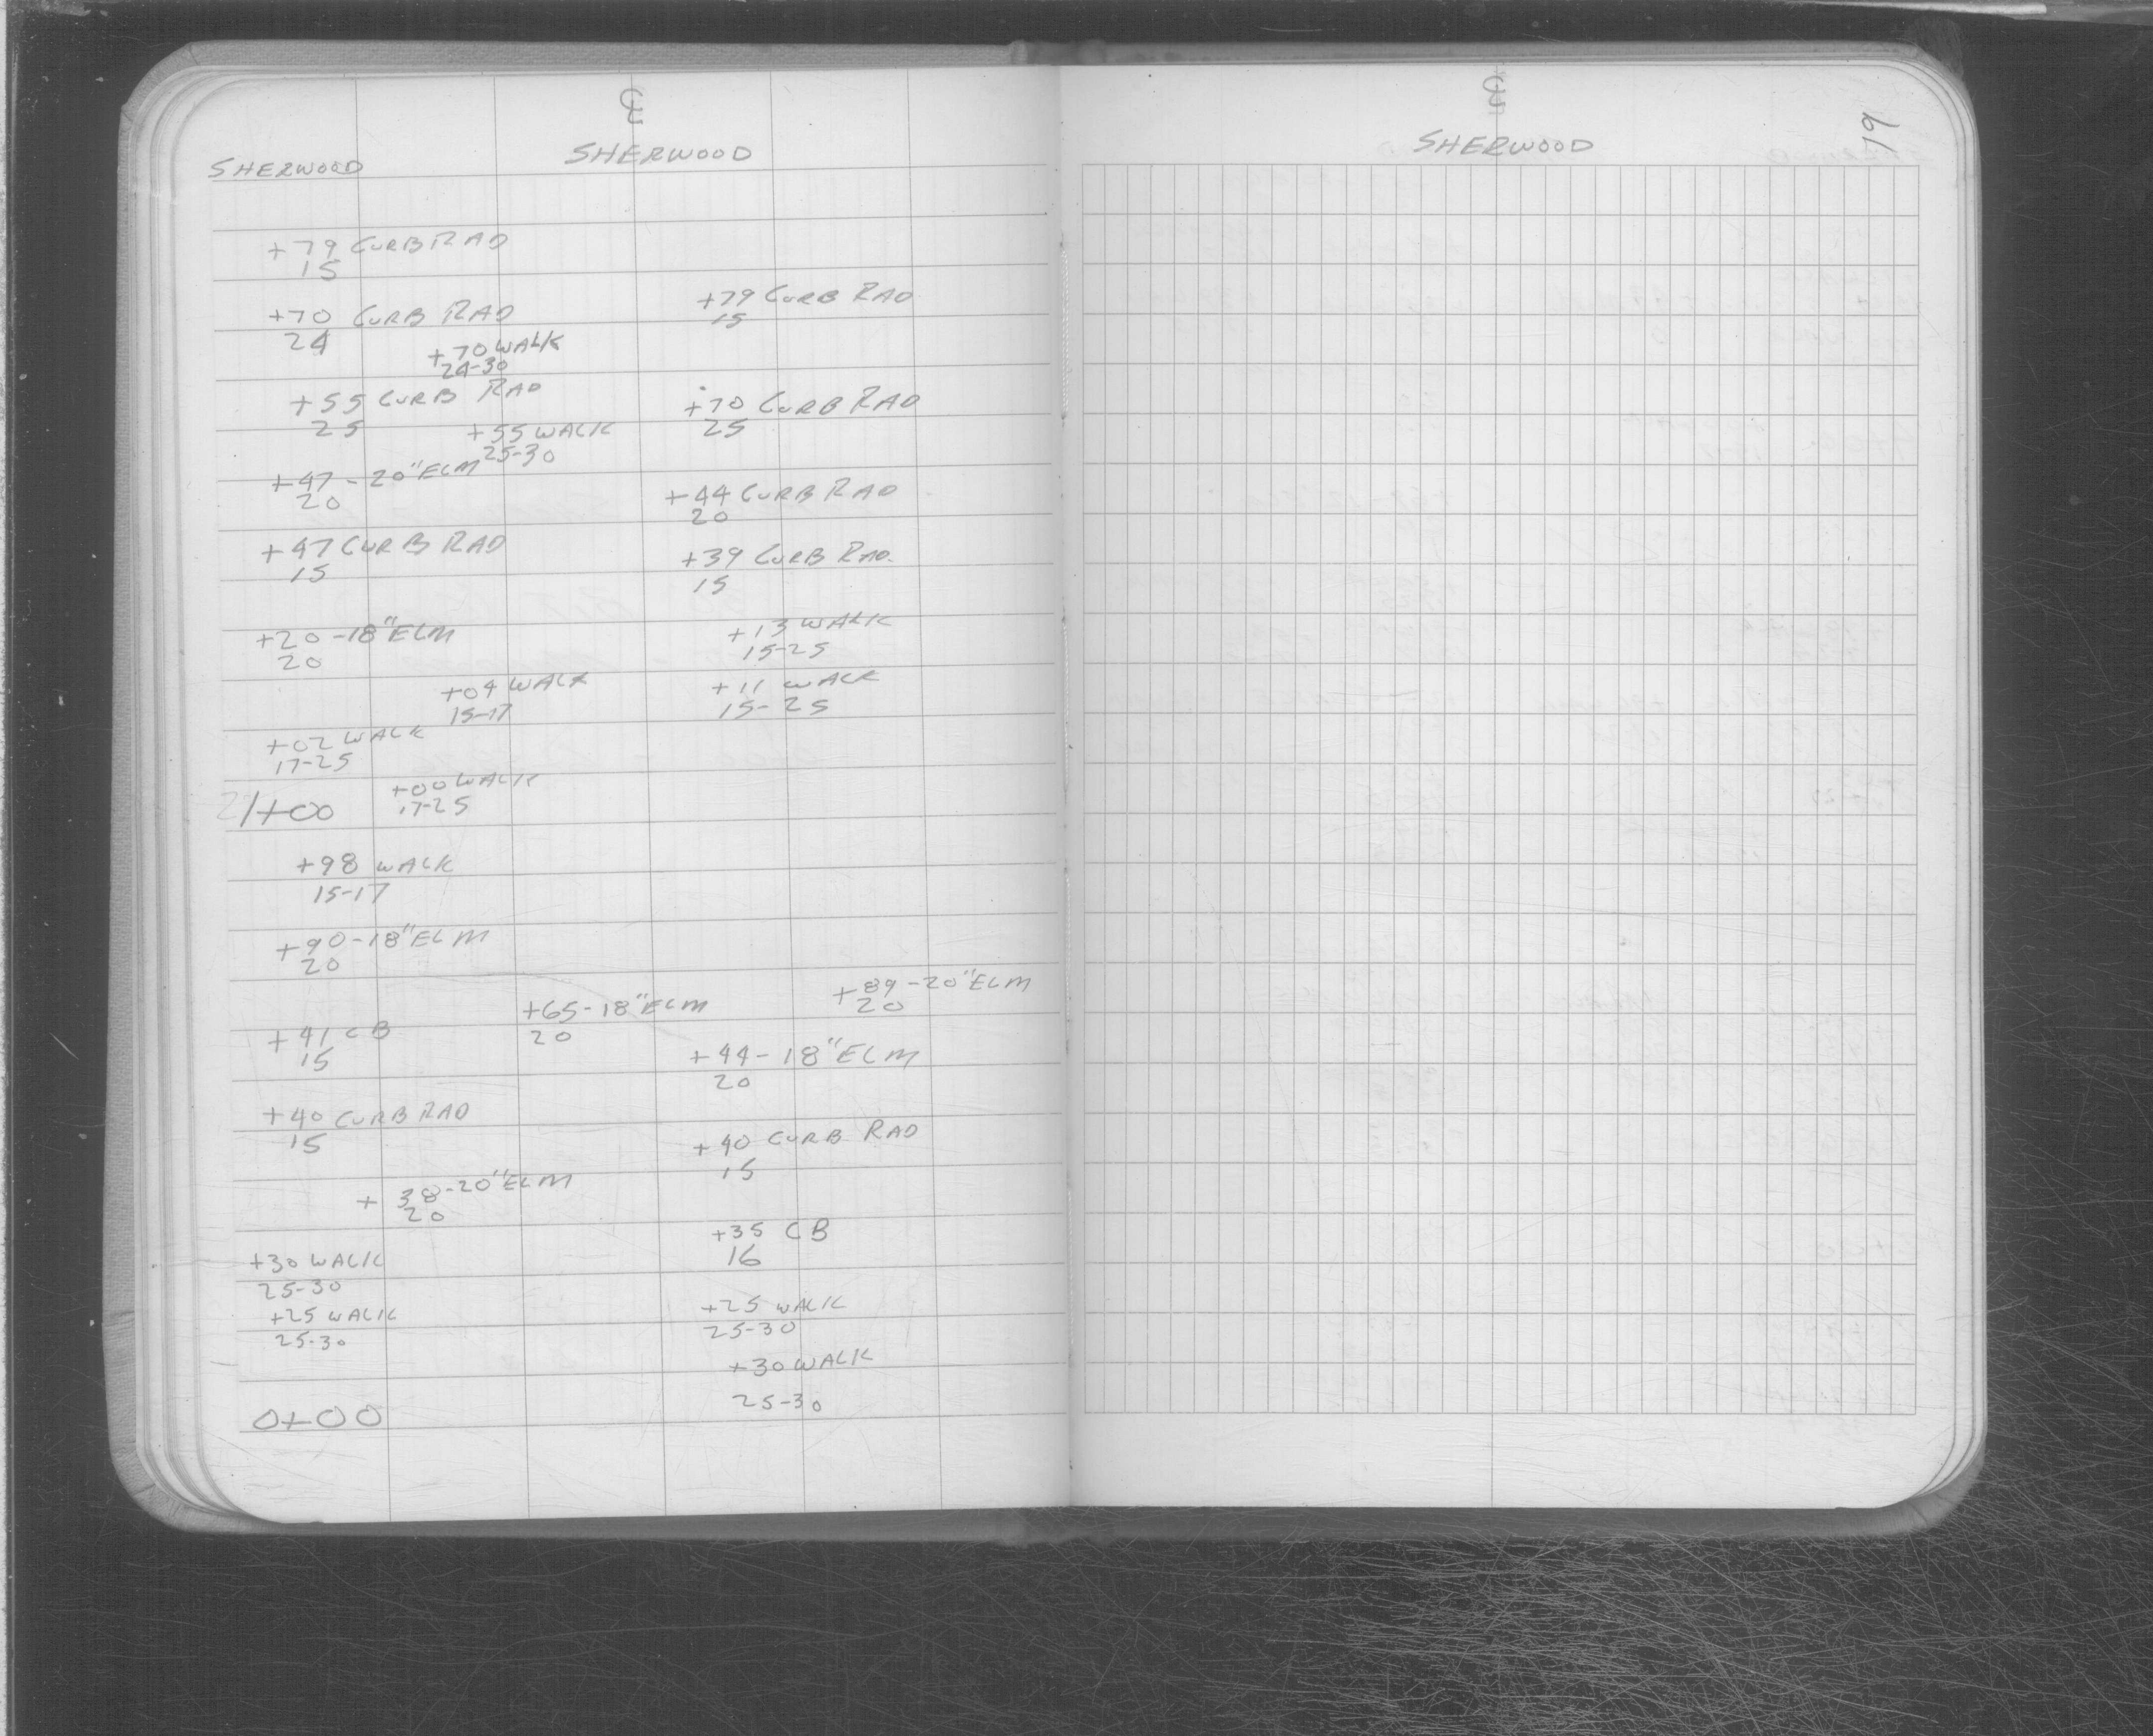 ℄
SHERWOOD SHERWOOD
+79 CURB RAD
15
+79 CURB RAD
15
+70 CURB RAD
24
+70 WALK
24-30
+55 CURB RAD
25
+70 CURB RAD
25
+55 WALK
25-30
+47-20"ELM
20
+44 CURB RAD
20
+47 CURB RAD
15
+39 CURB RAD.
15
+20-18"ELM
20
+13 WALK
15-25
+04 WALK
15-17
+11 WALK
15-25
+02 WALK
17-25
+00 WALK
17-25
1+00
+98 WALK
15-17
+90-18"ELM
20
+89-20"ELM
20
+65-18"ELM
20
+41 CB
15
+44-18"ELM
20
+40 CURB RAD
15
+40 CURB RAD
15
+38-20"ELM
20
+35 CB
16
+30 WALK
25-30
+25 WALK
25-30
+25 WALK
25-30
+30 WALK
25-30
0+00
℄
SHERWOOD
19